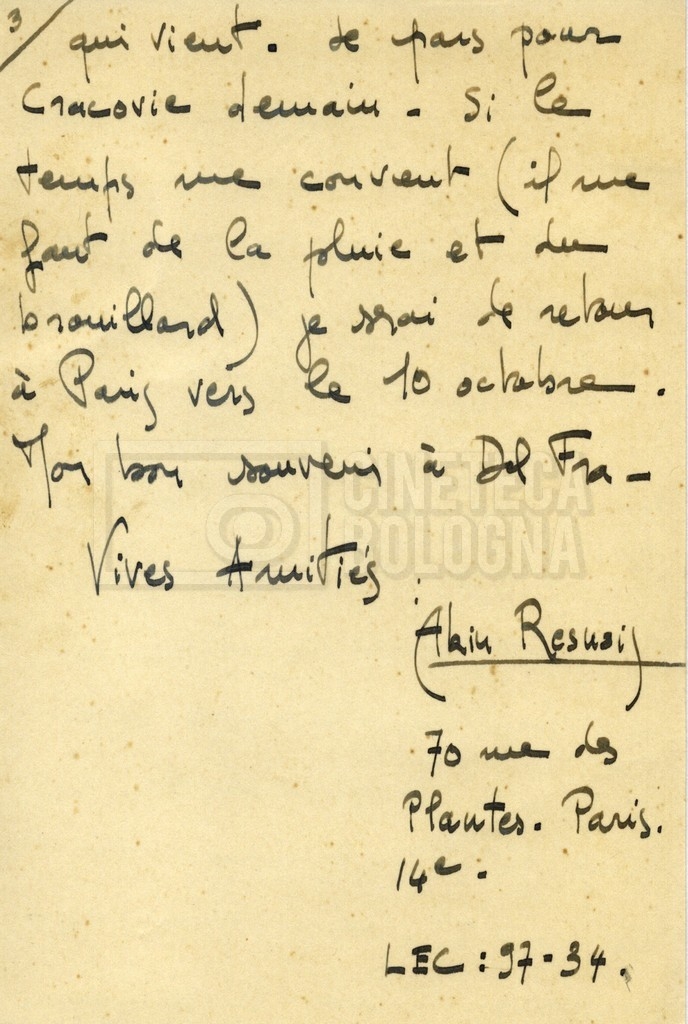 3/
qui vient. Je pars pour
Cracovie demain - Si le
temps me convient (il me
faut de la pluie et du
brouillard) je serai de retour
à Paris vers le 10 octobre.
Mon bon souvenir à Del Fra -
CINETECA
BOLOGNA
Vives Amitiés
Alain Resnais
70 rue des
Plantes. Paris.
14e.
LEC : 97-34.